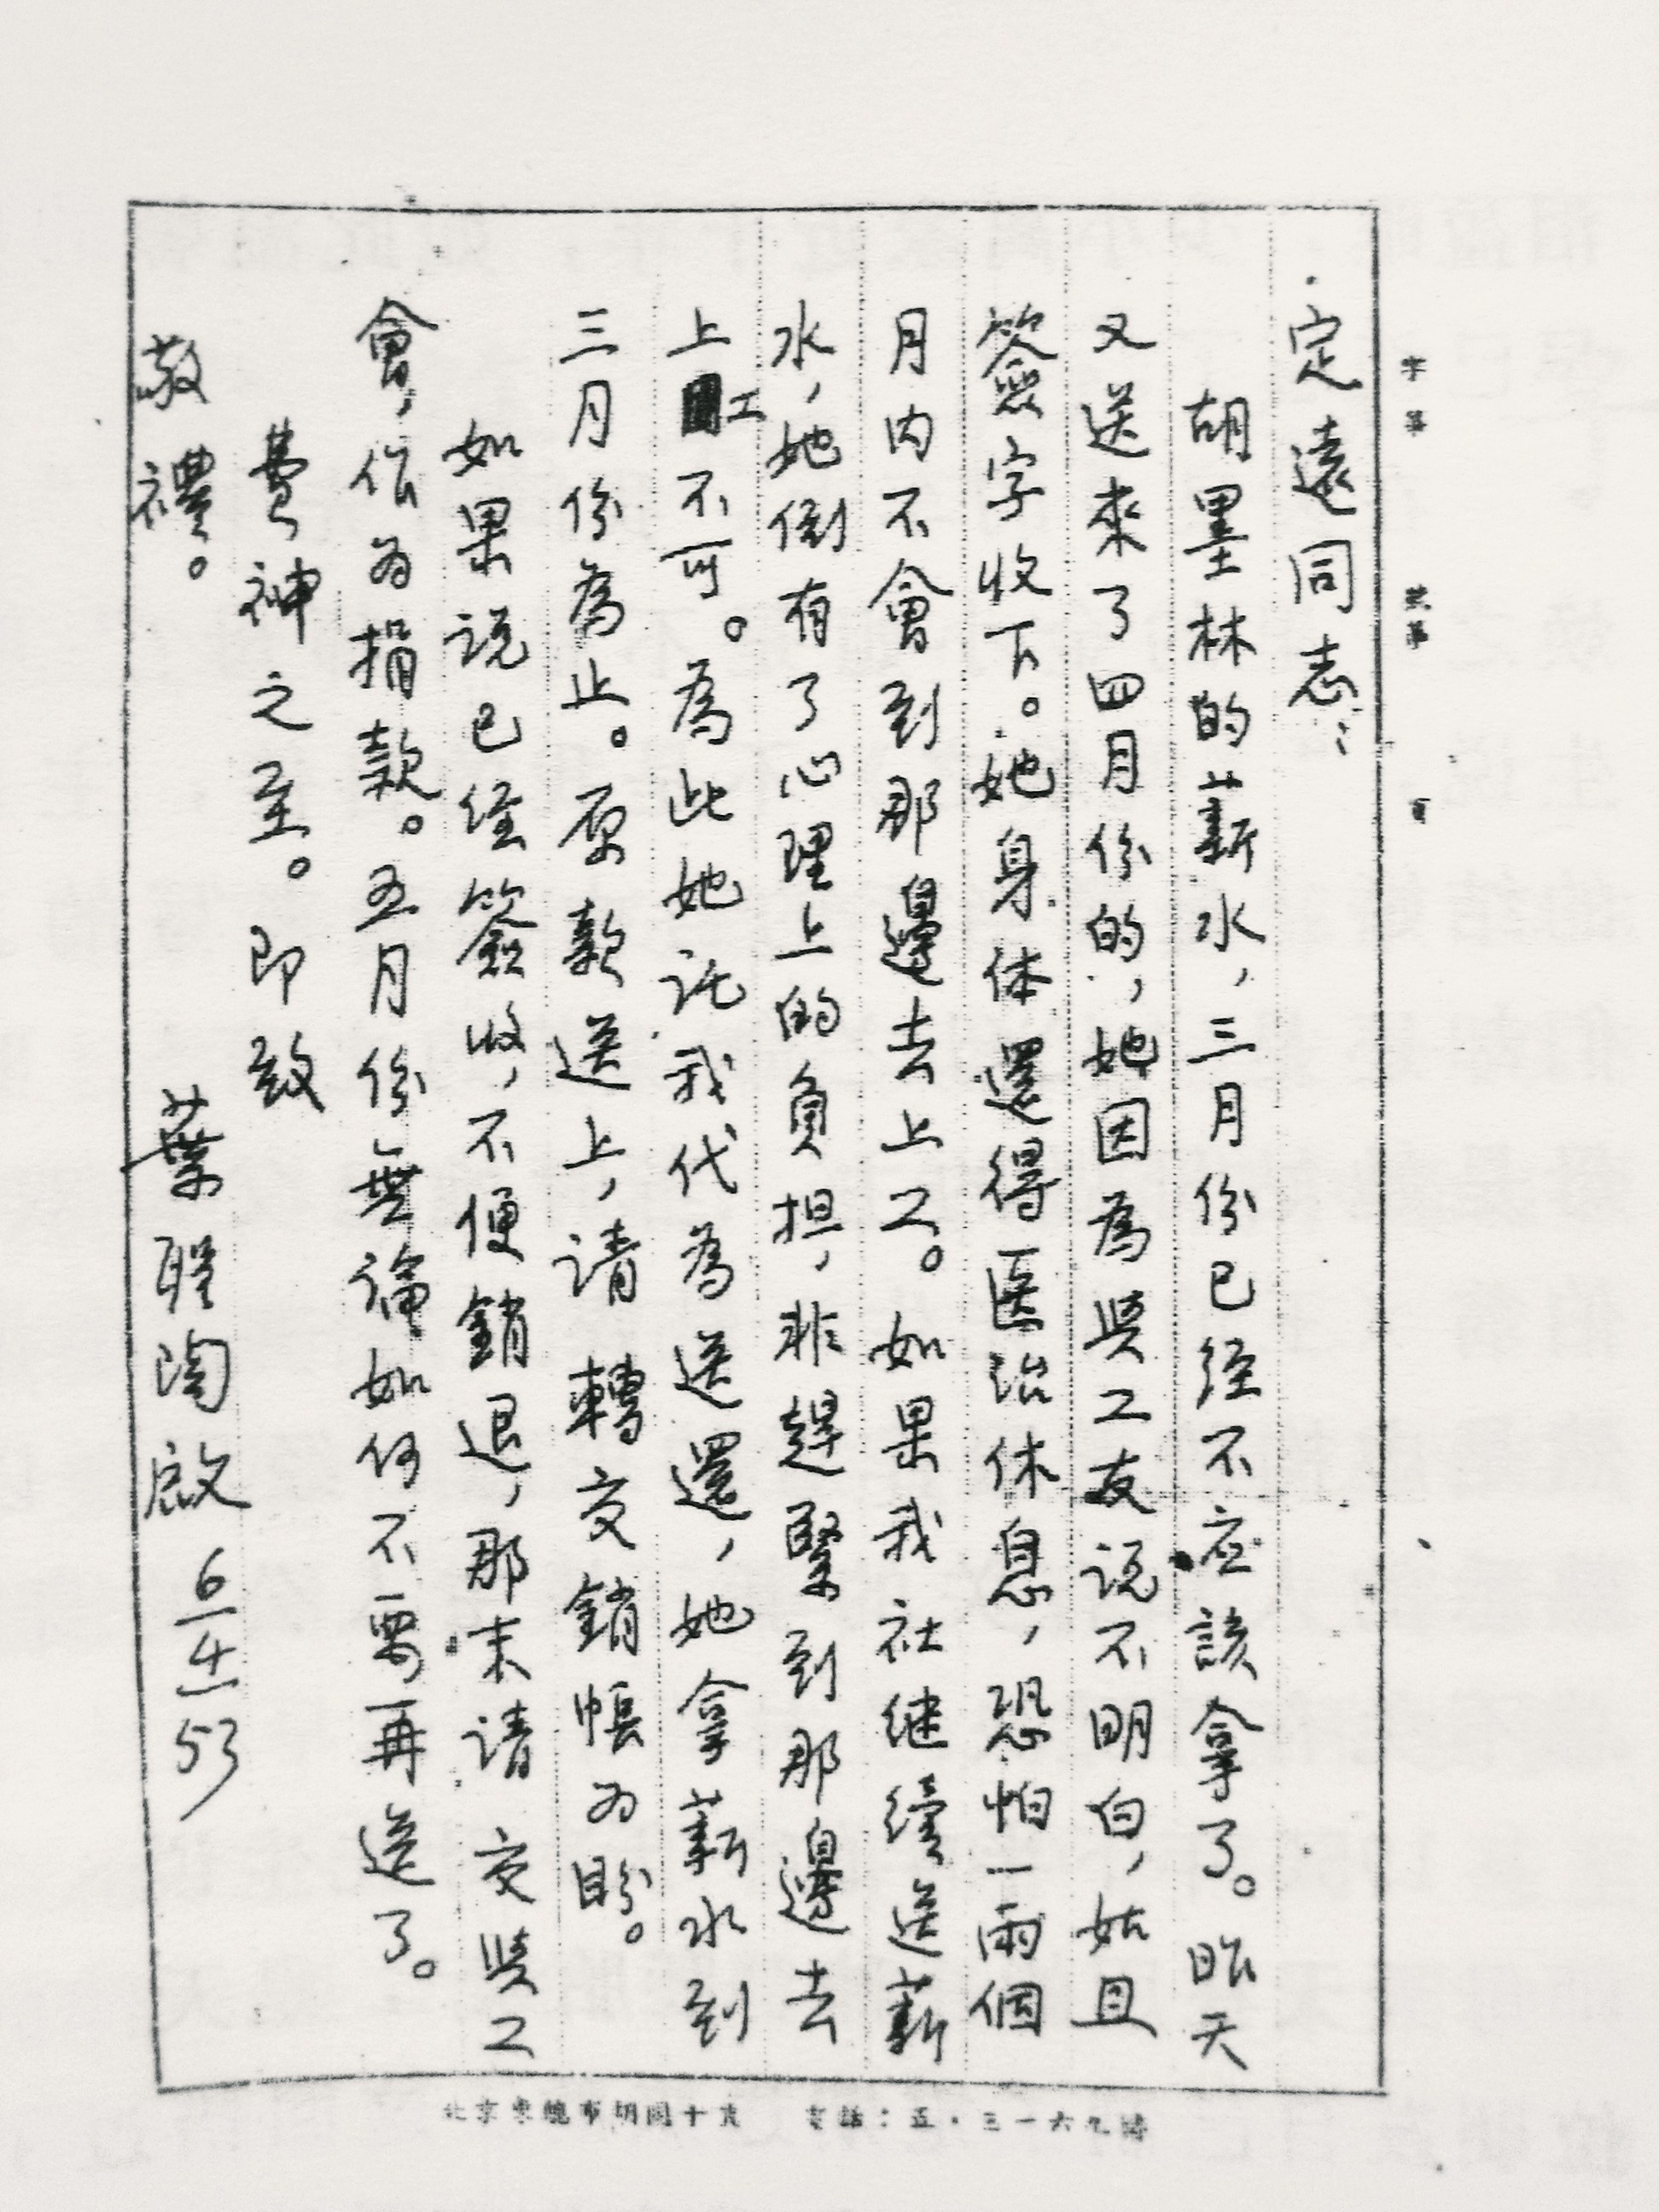 定遠同志：
胡墨林的薪水，三月份已经不应該拿了。昨天
又送來了四月份的，她因為與工友说不明白，姑且
簽字收下。她身体還得医治休息，恐怕一兩個
月内不會到那邊去上工。如果我社继續送薪
水，她倒有了心理上的負担，非趕緊到那邊去
上工不可。為此她託我代為送還，她拿薪水到
三月份為止。原款送上，请轉交銷帳为盼。
如果说已经簽收，不便銷退，那末请交與工
會，作为捐款。五月份無論如何不需再送了。
費神之至。即致
敬禮。
葉聖陶啟 6/4 53
字第 共第 頁
北京東總布胡同十號 電話：五·三一六九號